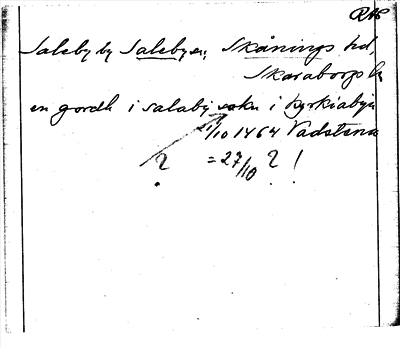 RAP
Saleby by Saleby sn, Skånings hd,
Skaraborgs l.
en gordh i salaby sokn i kyrkiabyn
21/10 1464 Vadstena
? = 27/10 ? !